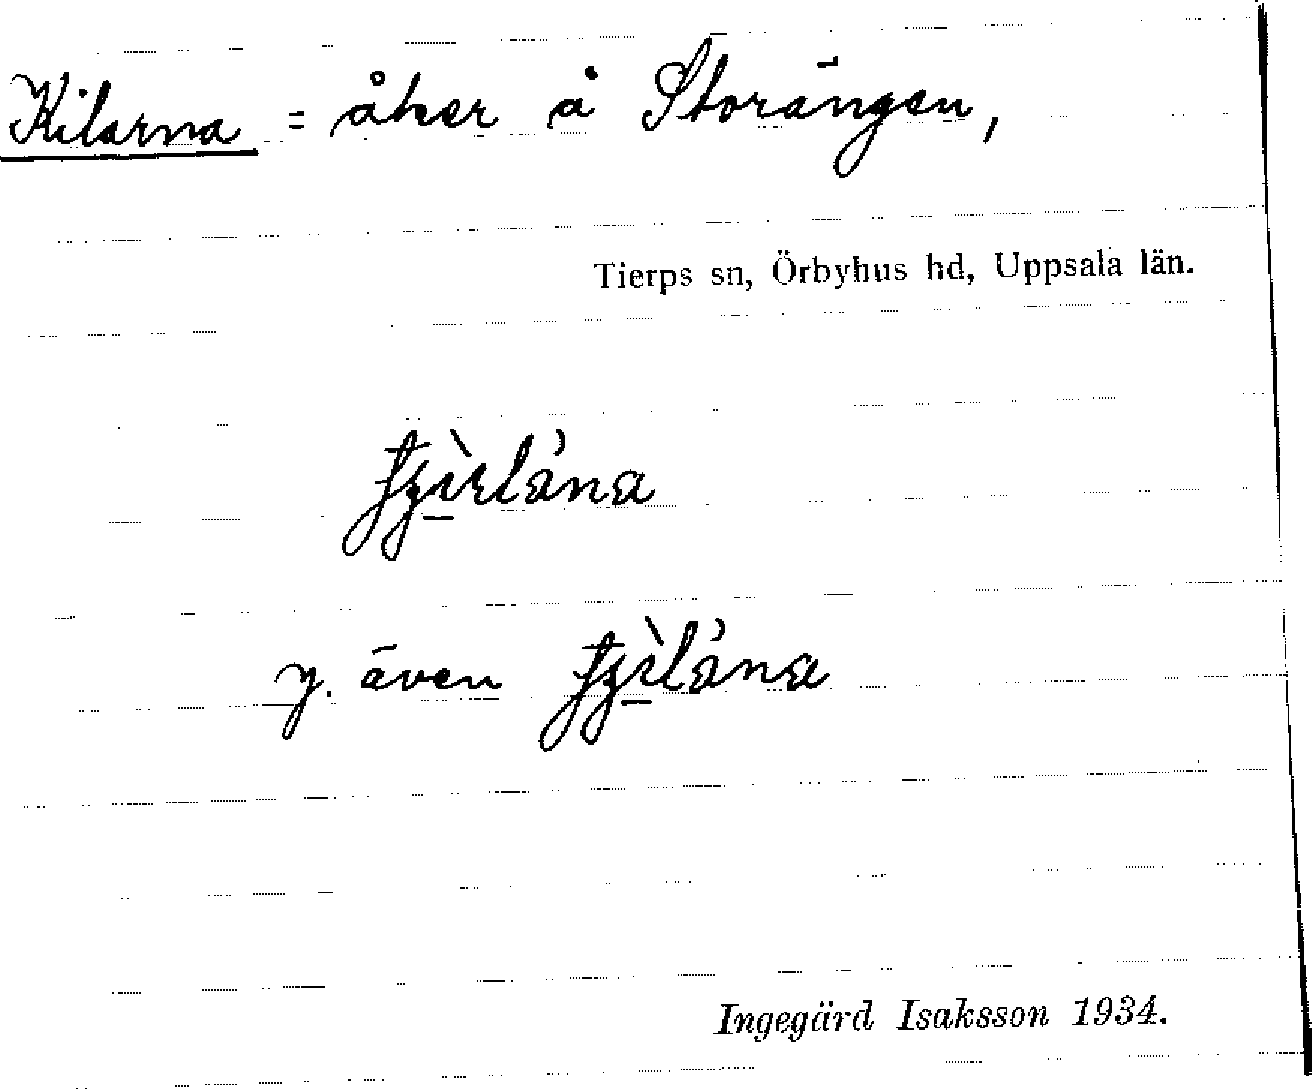 Kilarna = åker å Storängen,
Tierps sn, Örbyhus hd, Uppsala län.
y. även
Ingegärd Isaksson 1934.